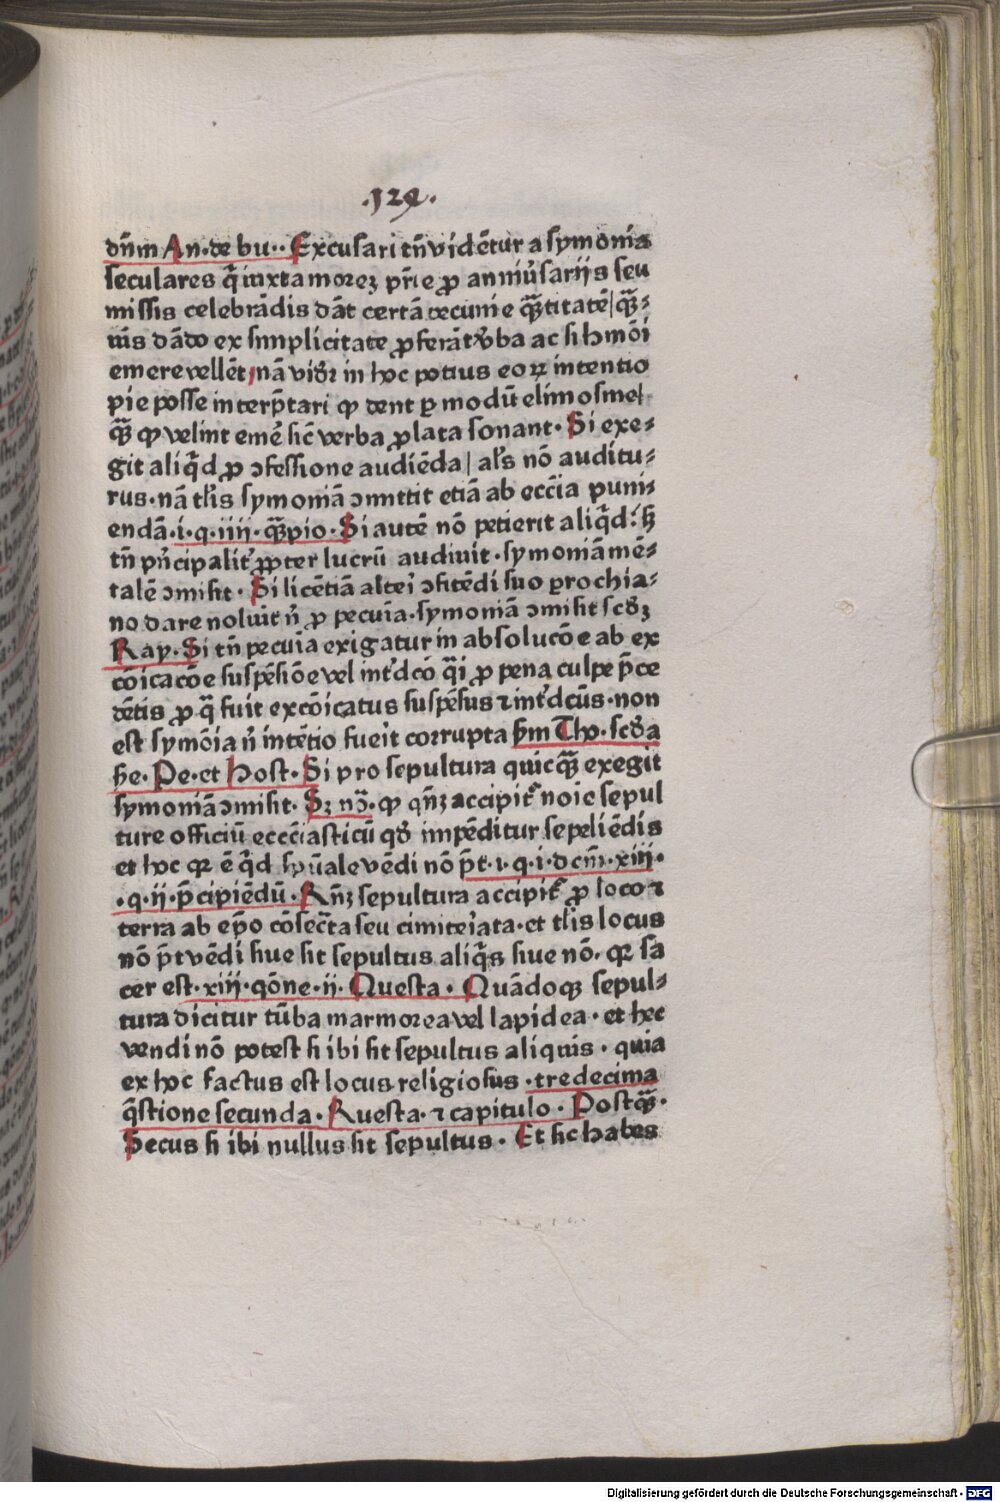 .124.
dn̄m An·de bu·· Excusari tn̄ vidētur a symonia
seculares q̄ iuxta morez pr̄ie ꝓ anniūsarijs seu
missis celebrādis dāt certā pecunie quātitatē/quā⸗
uis dādo ex simplicitate ꝓferāt v̄ba ac si hmōi
emere vellēt/nā vidr̄ in hoc potius eoꝝ intentio
pie posse interp̄tari ꝙ dent ꝑ modū elimosine/
quā ꝙ velint emē sic̄ verba ꝓlata sonant· Si exe⸗
git aliq̄d ꝓ ꝯfessione audiēda/ al's nō auditu⸗
rus·nā tl'is symoniā ꝯmittit etiā ab ecc̄ia puni⸗
endā·i·q·iiii·quāpio· Si autē nō petierit aliq̄d: sꝫ
tn̄ pn̄cipalit' ꝓpter lucrū audiuit·symoniā mē⸗
talē ꝯmisit· Si licētiā alteri ꝯfitēdi suo ꝑrochia⸗
no dare noluit n̄ ꝓ pecuīa·symoniā ꝯmisit scd'ꝫ
Ray· Si tn̄ pecuīa exigatur in absolucōe ab ex
cōicacōe suspēsiōe vel int'dc̄o q̄i ꝓ pena culpe p̄ce
dētis ꝓ q̄ fuit excōicatus suspēsus ⁊ int'dcūs·non
est symōia n̄ intētio fueīt corrupta sm̄ Tho·scd'a
se· Pe·et Host· Si pro sepultura quicquā exegit
symoniā ꝯmisit· Sꝫ nō·ꝙ qn̄ꝫ accipit' noīe sepul
ture officiū eccc̄iasticū qd' impēditur sepeliēdis
et hoc qꝛ ē q̄d spūale vēdi nō p̄t·i·q·i·dcm̄·xiii·
·q·ii·p̄cipiēdū· Qn̄ꝫ sepultura accipit' ꝓ loco ⁊
terra ab ep̄o cōsec̄ta seu cimiteīata·et tl'is locus
nō p̄t vēdi siue sit sepultus aliq̄s siue nō· qꝛ sa
cer est·xiii·qōne·ii· Questa· Quādoqꝫ sepul⸗
tura dicitur tūba marmorea vel lapidea·et hec
vendi nō potest si ibi sit sepultus aliquis· quia
ex hoc factus est locus religiosus·tredecima
q̄stione secunda· Questa·⁊ capitulo· Postquā·
Secus si ibi nullus sit sepultus· Et sic habes
Digitalisierung gefördert durch die Deutsche Forschungsgemeinschaft · DFG